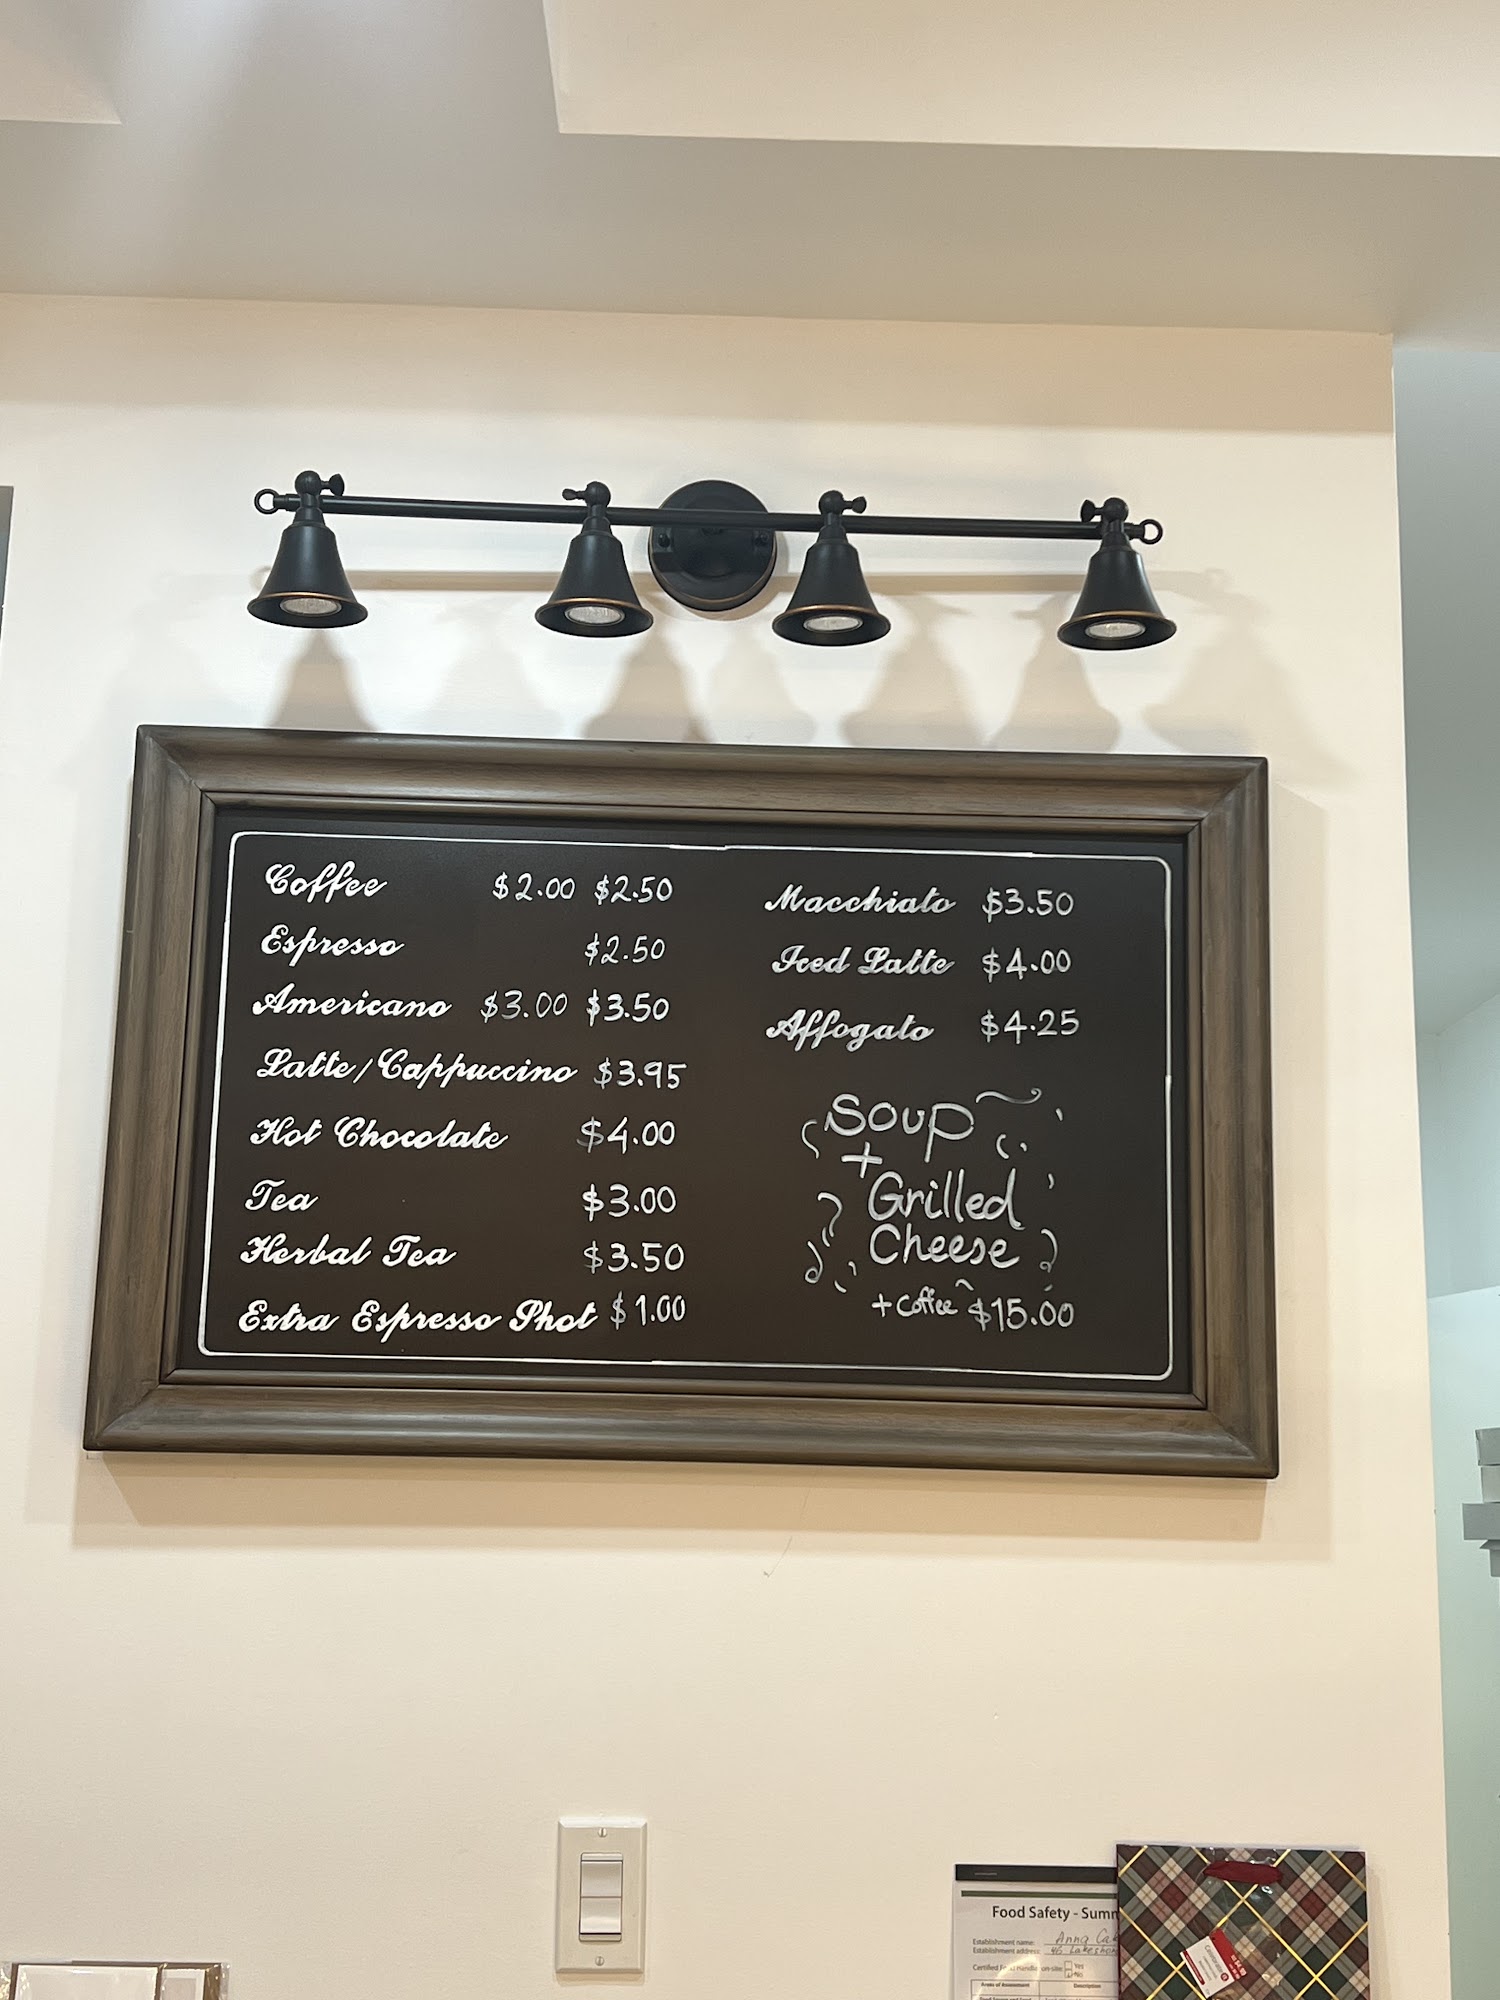 Coffee $2.00 $2.50
Espresso $2.50
Americano $3.00 $3.50
Latte/Cappuccino $3.95
Hot Chocolate $4.00
Tea $3.00
Herbal Tea $3.50
Extra Espresso Shot $1.00
Macchiato $3.50
Iced Latte $4.00
Affogato $4.25
Soup
+
Grilled
Cheese
+ Coffee $15.00
Food Safety - Summ
Establishment name: Anna Ca
Establishment address: 46 Lakeshor
Certified Food Handler on-site: Yes
No
Areas of Assessment Description